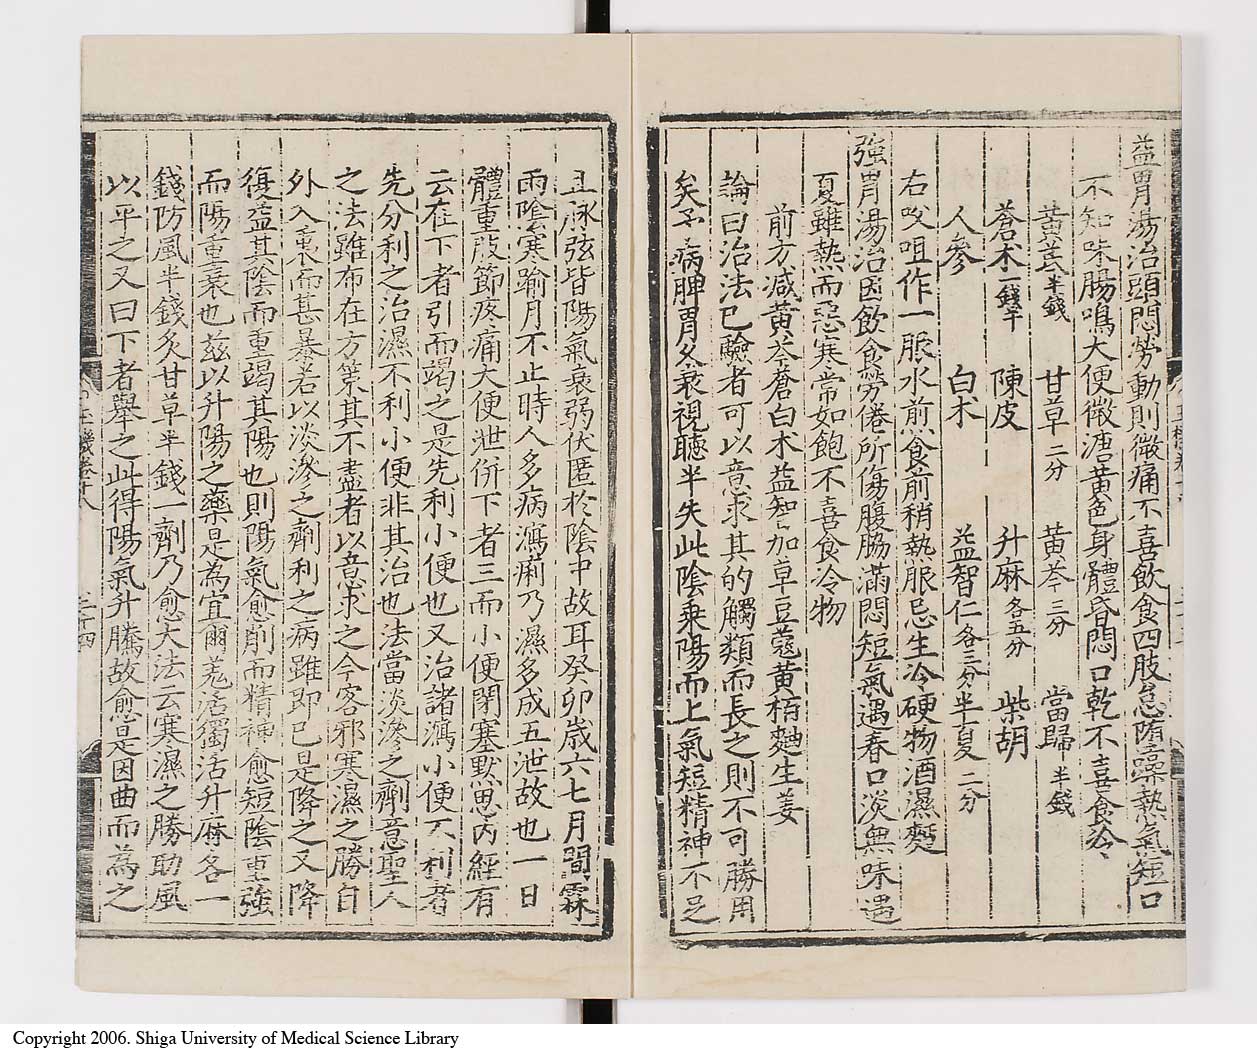 益胃湯治頭悶勞動則微痛不喜飲食四肢怠惰躁熱氣短口
不知味腸鳴大便微溏黃色身體昏悶口乾不喜食冷
黃芪半錢 甘草二分 黃芩三分 當歸半錢
蒼朮一錢半 陳皮 升麻各五分 柴胡
人參 白朮 益智仁各三分 半夏二分
右㕮咀作一服水煎食前稍熱服忌生冷硬物酒濕麵
強胃湯治因飲食勞倦所傷腹脇滿悶短氣遇春口淡無味遇
夏雖熱而惡寒常如飽不喜食冷物
前方減黃芩蒼白朮益知加草豆蔻黃栢麯生姜
論曰治法已驗者可以意求其的觸類而長之則不可勝用
矣予病脾胃久衰視聽半失此陰乘陽而上氣短精神不足
且脉弦皆陽氣衰弱伏匿於陰中故耳癸卯歲六七月間霖
雨陰寒踰月不止時人多病瀉痢乃濕多成五泄故也一日
體重肢節疼痛大便泄併下者三而小便閉塞默思內經有
云在下者引而竭之是先利小便也又治諸瀉小便不利者
先分利之治濕不利小便非其治也法當淡滲之劑意聖人
之法雖布在方策其不盡者以意求之今客邪寒濕之勝自
外入裏而甚暴若以淡滲之劑利之病雖即已是降之又降
復益其陰而重竭其陽也則陽氣愈削而精神愈短陰重強
而陽重衰也茲以升陽之藥是為宜爾羗活獨活升麻各一
錢防風半錢炙甘草半錢一劑乃愈大法云寒濕之勝助風
以平之又曰下者舉之此得陽氣升騰故愈是因曲而為之
卷十八
三十四
Copyright 2006. Shiga University of Medical Science Library